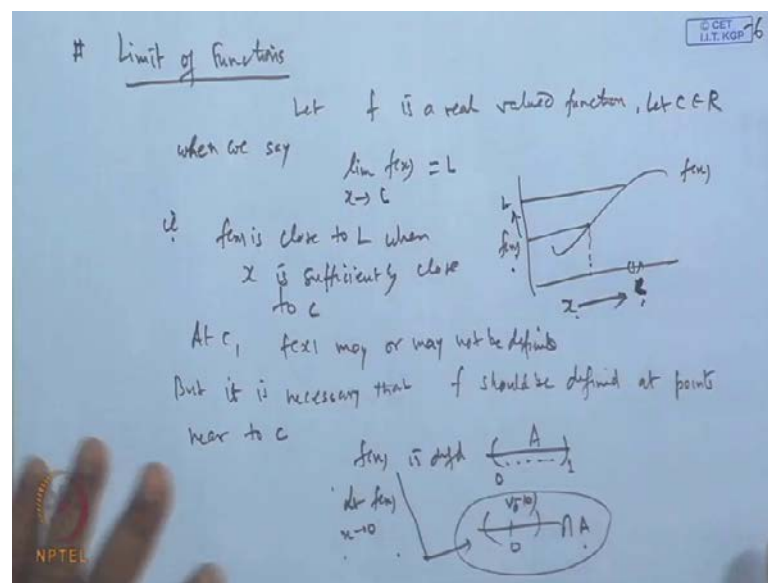 © CET
I.I.T. KGP
6
# Limit of Functions
Let f is a real valued function, Let C ∈ R
when we say
lim f(x) = L
x → C
f(x)
L
f(x) is close to L when
f(x)
x is sufficiently close
to c
x
C
At c, f(x) may or may not be defined
But it is necessary that f should be defined at points
near to c
f(x) is defd ( A )
0 1
Lt f(x)
x→0
( ) ∩ A
0
NPTEL